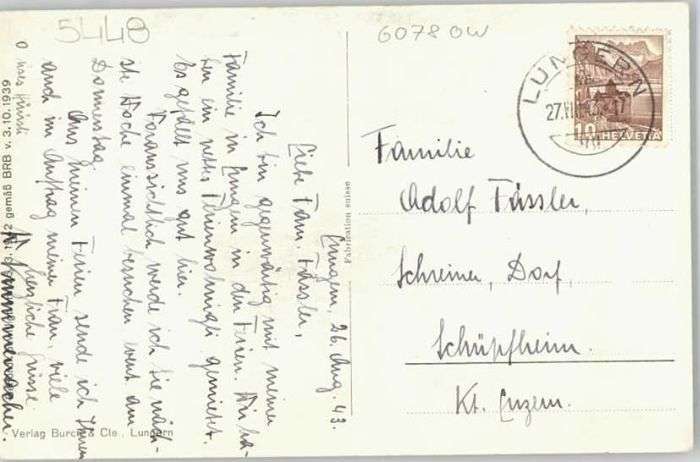 5440
6078 OW
LUNGERN
27.VIII.43-17
10 HELVETIA
Familie
Adolf Fässler,
Schreiner, Dorf,
Schüpfheim.
Kt. Luzern.
Fabrication suisse
Lungern, 26. Aug. 43.
Liebe Fam. Fässler,
Ich bin gegenwärtig mit meiner
Familie in Lungern in den Ferien. Wir ha-
ben ein nettes Ferienwohnigli gemietet.
Es gefällt uns gut hier.
Voraussichtlich werde ich Sie näch-
ste Woche einmal besuchen event. am
Donnerstag.
Aus meinen Ferien sende ich Ihnen
auch im Auftrag meiner Frau, viele
herzliche Grüsse
gemäß BRB v. 3.10.1939
Verlag Burch & Cie., Lungern